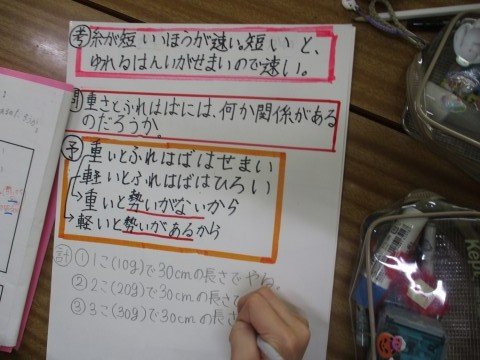 考 糸が短いほうが速い。短いと、
ゆれるはんいがせまいので速い。
問 重さとふれはばには、何か関係がある
のだろうか。
予 重いとふれはばはせまい
軽いとふれはばはひろい
→重いと勢いがないから
→軽いと勢いがあるから
計 ①1こ(10g)で30cmの長さでやる。
②2こ(20g)で30cmの長さで
③3こ(30g)で30cmの長さ